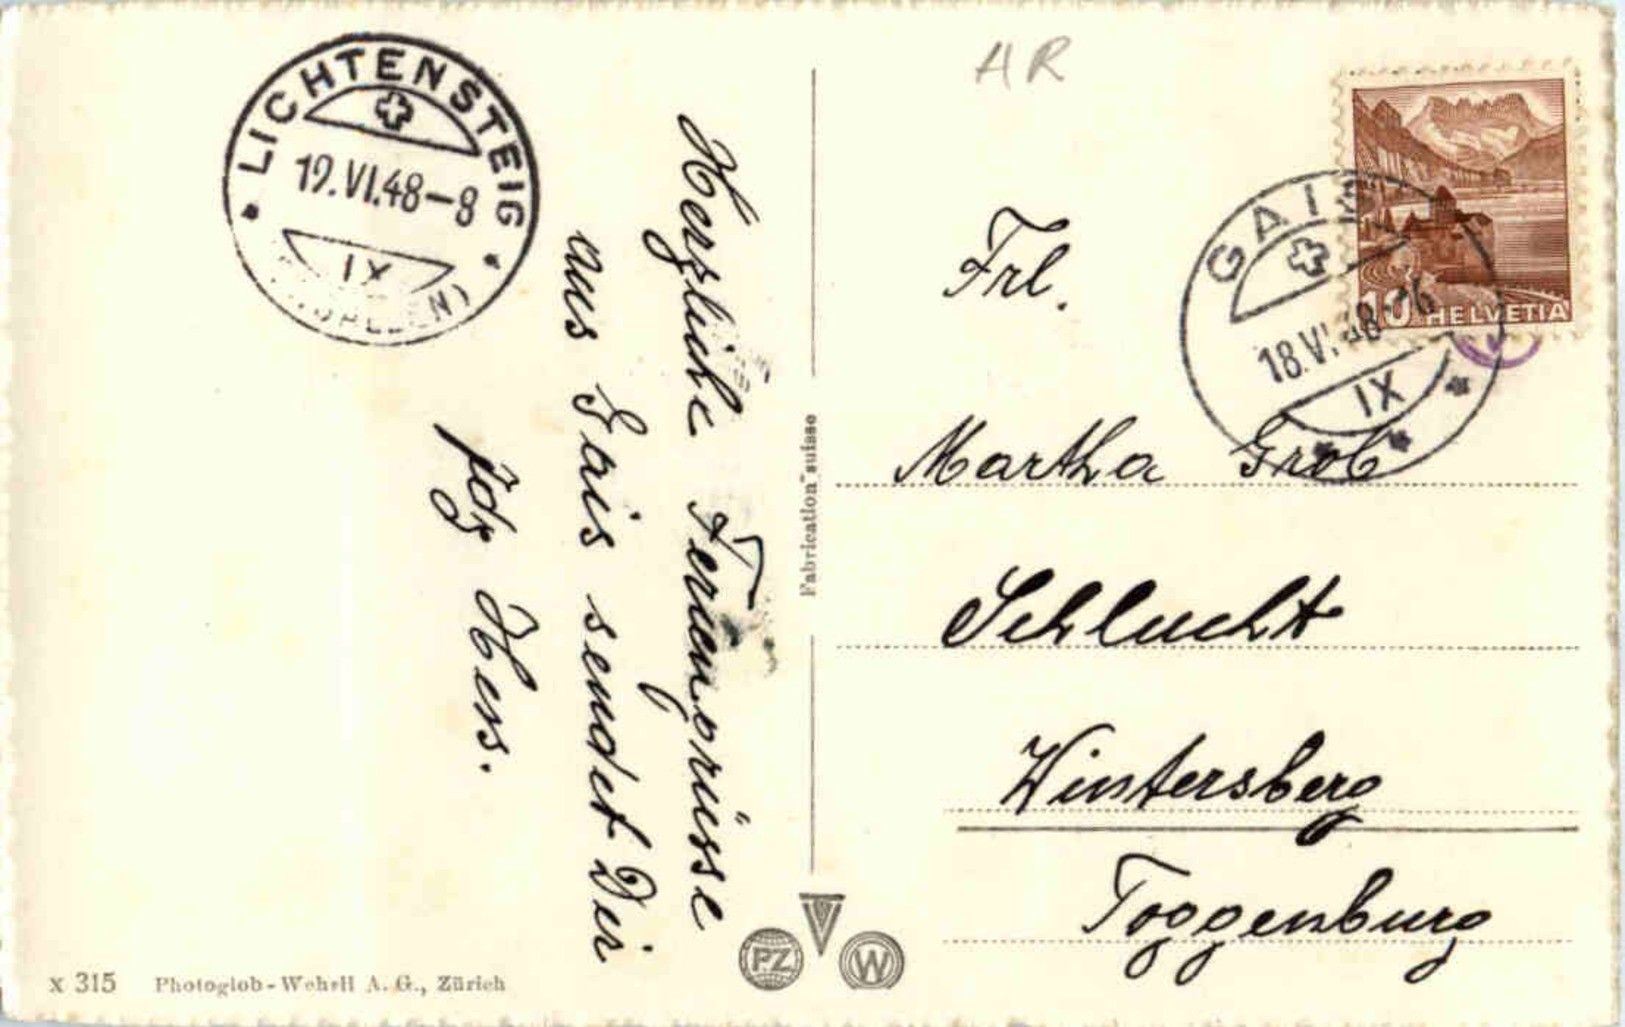 LICHTENSTEIG
19.VI.48-8
IX
AR
GAIS
18.VI.48-16
IX
10 HELVETIA
Herzliche Feriengrüsse
aus Gais sendet Dir
Hess.
Frl.
Martha Grob
Schlucht
Wintersberg
Toggenburg
Fabrication suisse
PZ
W
x 315 Photoglob-Wehrli A. G., Zürich